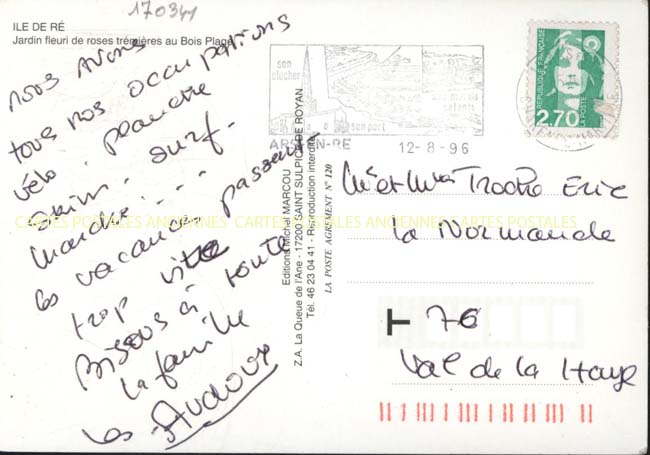 170341
ILE DE RÉ
Jardin fleuri de roses trémières au Bois Plage
nous avons
tous nos occupations
vélo. planche
swim. surf.
marche...
les vacances passent
trop vite
Bisous à toute
la famille
les Audoux
Editions Michel MARCOU
Z.A. La Queue de l'Ane - 17200 SAINT SULPICE DE ROYAN
Tél. 46 23 04 41 - Reproduction interdite
LA POSTE AGREMENT N° 120
son
clocher
son port
ARS-EN-RE
12-8-96
REPUBLIQUE FRANÇAISE
2,70
LA POSTE
Mr et Mme Eric
La Normande
76
Val de la Haye
CARTES POSTALES ANCIENNES CARTES POSTALES ANCIENNES CARTES POSTALES